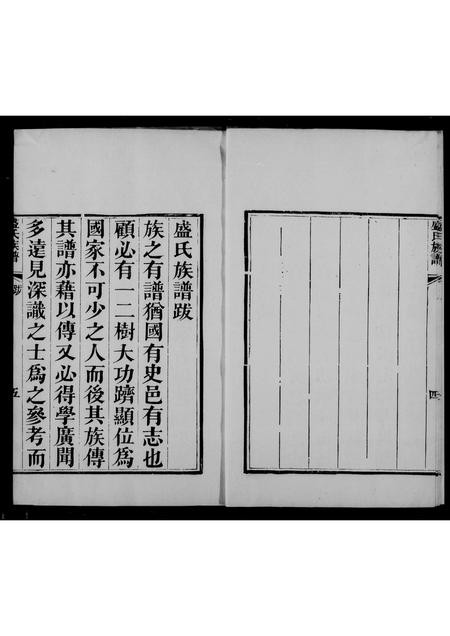 盛氏族譜
四
盛氏族譜跋
族之有譜猶國有史邑有志也
顧必有一二樹大功躋顯位為
國家不可少之人而後其族傳
其譜亦藉以傳又必得學廣聞
多達見深識之士為之參考而
盛氏族譜
跋
五